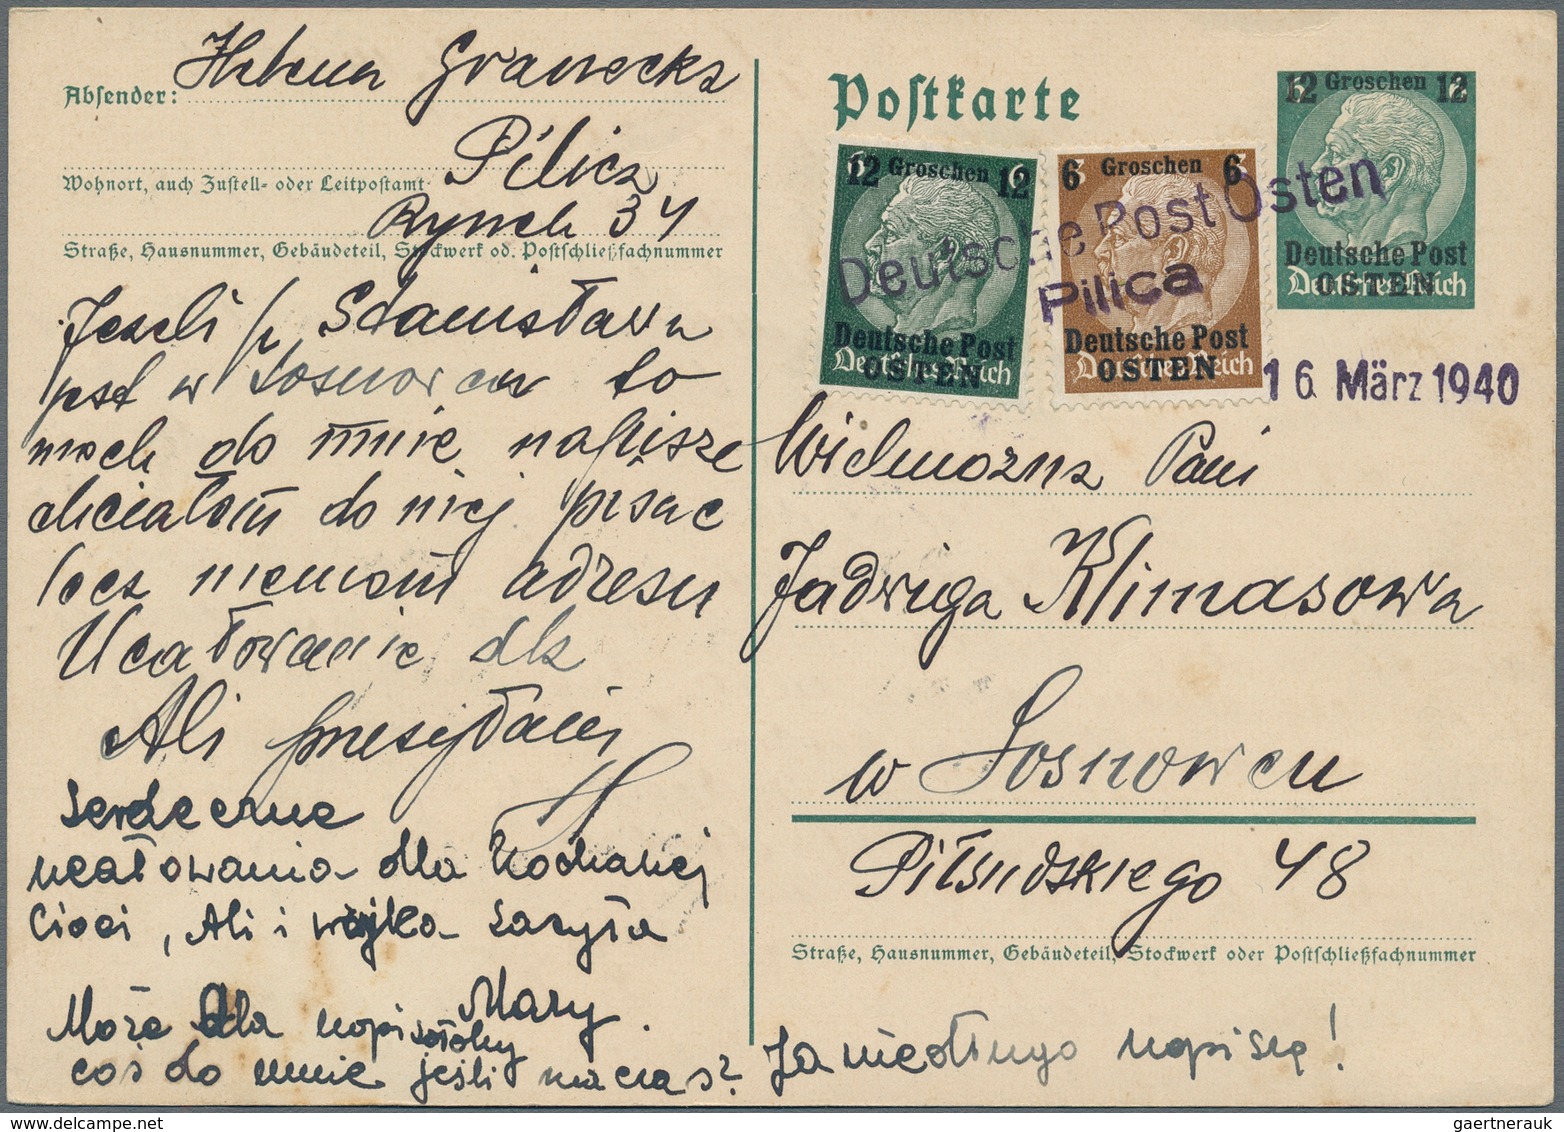 Absender: Helena Granecka
Pilica
Wohnort, auch Zustell- oder Leitpostamt
Rynek 34
Straße, Hausnummer, Gebäudeteil, Stockwerk od. Postschließfachnummer
Jezeli p. Stanisława
jest w Sosnowcu to
niech do mnie napisze
chciałam do niej pisac
lecz niemam adresu
Ucałowanie dla
Ali przesyłam
H
serdeczne
ucałowania dla Kochanej
Cioci, Ali i wujka zasyła
Mary.
Może Ala napisałaby
coś do mnie jeśli ma czas?
Ja niedługo napiszę!
Postkarte
12 Groschen 12
Deutsche Post
OSTEN
Deutsches Reich
12 Groschen 12
Deutsche Post
OSTEN
Deutsches Reich
6 Groschen 6
Deutsche Post
OSTEN
Deutsches Reich
Deutsche Post Osten
Pilica
16. März 1940
Wielmożna Pani
Jadwiga Klimasowa
w Sosnowcu
Piłsudskiego 48
Straße, Hausnummer, Gebäudeteil, Stockwerk oder Postschließfachnummer
gaertnerauk @ delcampe.net